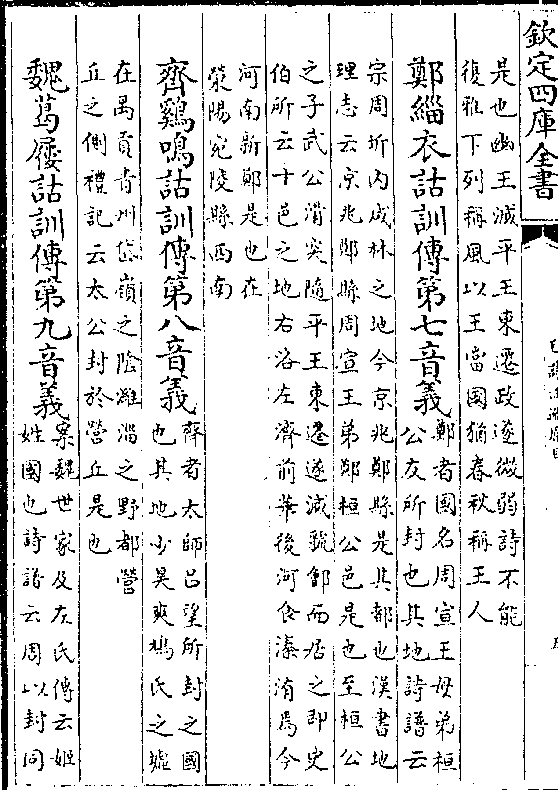 欽定四庫全書
是也幽王滅平王東遷政遂微弱詩不能
復雅下列稱風以王當國猶春秋稱王人
鄭緇衣詁訓傳第七音義
鄭者國名周宣王母弟桓
公友所封也其地詩譜云
宗周圻內咸林之地今京兆鄭縣是其都也漢書地
理志云京兆鄭縣周宣王弟鄭桓公邑是也至桓公
之子武公滑突隨平王東遷遂滅虢鄶而居之即史
伯所云十邑之地右洛左濟前華後河食溱洧焉今
河南新鄭是也在
滎陽宛陵縣西南
齊鷄鳴詁訓傳第八音義
齊者太師呂望所封之國
也其地少昊爽鳩氏之墟
在禹貢青州岱嶺之陰濰淄之野都營
丘之側禮記云太公封於營丘是也
魏葛屨詁訓傳第九音義
案魏世家及左氏傳云姬
姓國也詩譜云周以封同